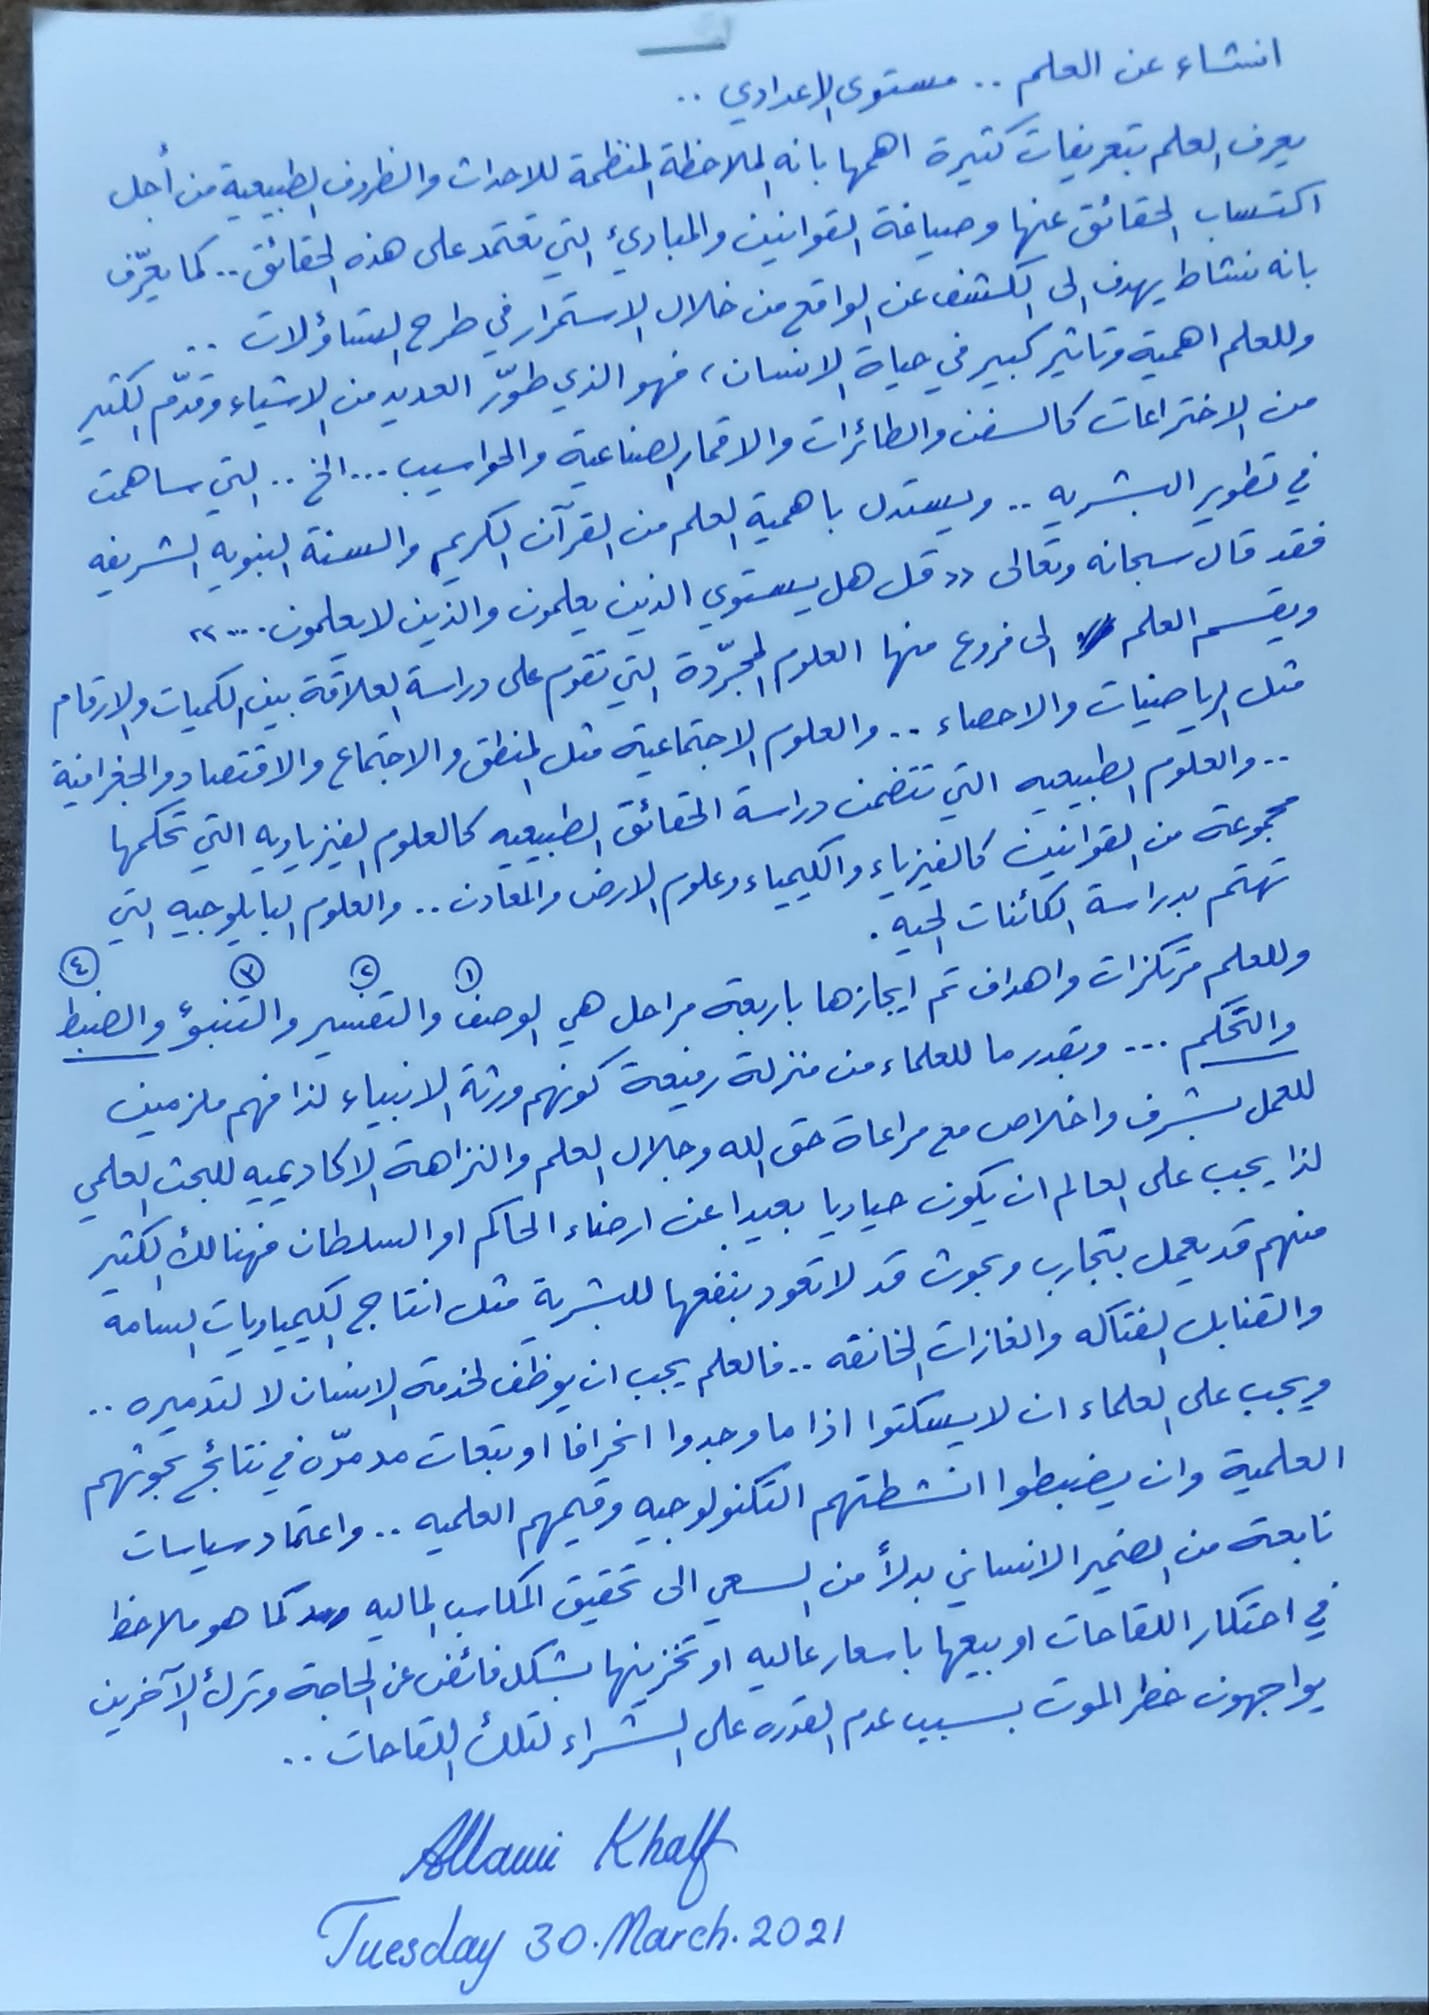 انشاء عن العلم .. مستوى الاعدادي ..
يعرف العلم بتعريفات كثيرة اهمها بانه الملاحظة المنظمة للاحداث والظروف الطبيعية من أجل
اكتساب الحقائق عنها وصياغة القوانين والمباديء التي تعتمد على هذه الحقائق .. كما يعرّف
بانه نشاط يهدف الى الكشف عن الواقع من خلال الاستمرار في طرح التساؤلات ..
وللعلم اهمية وتاثير كبير في حياة الانسان ، فهو الذي طوّر العديد من الاشياء وقدّم الكثير
من الاختراعات كالسفن والطائرات والاقمار الصناعية والحواسيب ... الخ .. التي ساهمت
في تطوير البشريه .. ويستدل باهمية العلم من القرآن الكريم والسنة النبويه الشريفه
فقد قال سبحانه وتعالى (( قل هل يستوي الذين يعلمون والذين لا يعلمون .... ))
ويقسم العلم الى فروع منها العلوم المجرّدة التي تقوم على دراسة العلاقة بين الكميات والارقام
مثل الرياضيات والاحصاء .. والعلوم الاجتماعية مثل المنطق والاجتماع والاقتصاد والجغرافية
.. والعلوم الطبيعيه التي تتضمن دراسة الحقائق الطبيعيه كالعلوم الفيزياويه التي تحكمها
مجموعة من القوانين كالفيزياء والكيمياء وعلوم الارض والمعادن .. والعلوم البايلوجيه التي
تهتم بدراسة الكائنات الحيه .
وللعلم مرتكزات واهداف تم ايجازها باربعة مراحل هي ①الوصف ②والتفسير ③والتنبؤ ④والضبط
والتحكم ... وبقدر ما للعلماء من منزلة رفيعة كونهم ورثة الانبياء لذا فهم ملزمين
للعمل بشرف واخلاص مع مراعاة حق الله وجلال العلم والنزاهة الاكاديميه للبحث العلمي
لذا يجب على العالم ان يكون حياديا بعيدا عن ارضاء الحاكم او السلطان فهنالك الكثير
منهم قد يعمل بتجارب وبحوث قد لا تعود بنفعها للبشرية مثل انتاج الكيمياويات السامه
والقنابل الفتاكه والغازات الخانقه .. فالعلم يجب ان يوظف لخدمة الانسان لا لتدميره ..
ويجب على العلماء ان لا يسكتوا اذا ما وجدوا انحرافا او تبعات مدمّره في نتائج بحوثهم
العلمية وان يضبطوا انشطتهم التكنولوجيه وقيمهم العلميه .. واعتماد سياسات
نابعة من الضمير الانساني بدلاً من السعي الى تحقيق المكاسب الماليه كما هو ملاحظ
في احتكار اللقاحات او بيعها باسعار عاليه او تخزينها بشكل فائض عن الحاجة وترك الآخرين
يواجهون خطر الموت بسبب عدم القدره على الشراء لتلك اللقاحات ..
Allawi Khalf
Tuesday 30.March.2021